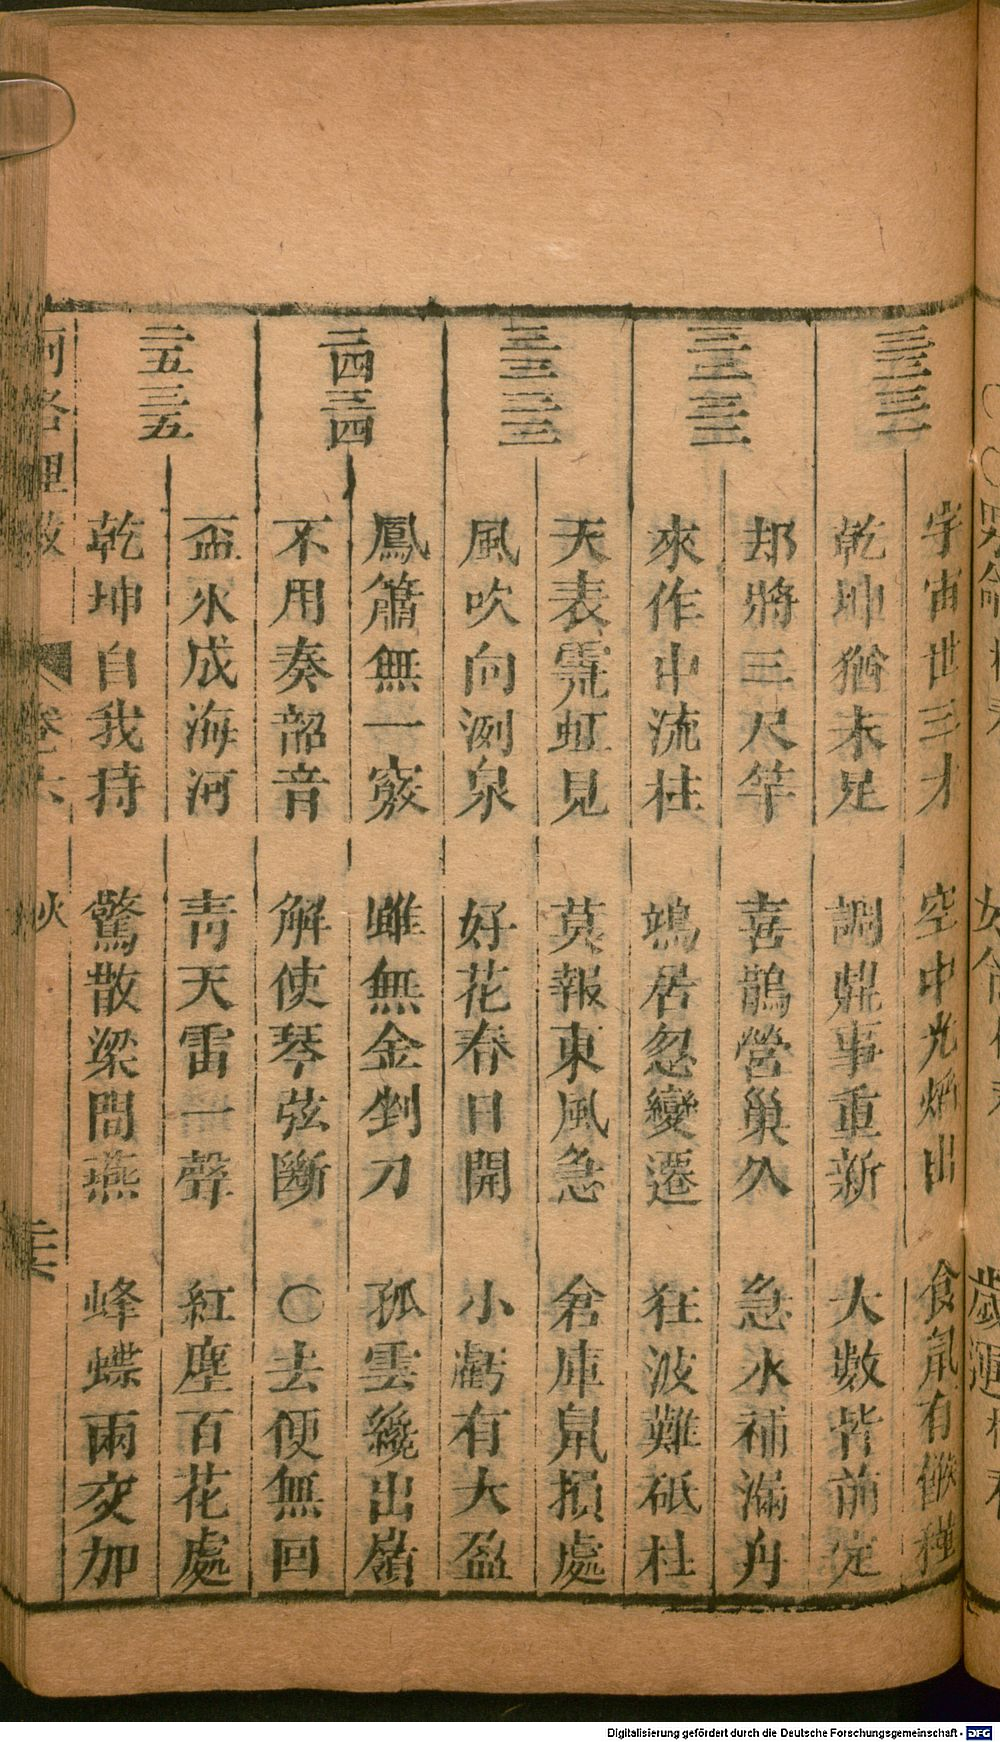 三三三一
宇宙世三才　空中光焰出　食氣有餱種
乾坤猶未足　調鼎事重新　大數皆前定
三二三二
却將三尺竿　喜鵲營巢久　急水補漏舟
來作中流柱　鴆居忽變遷　狂波難砥柱
三三三三
天表霓虹見　莫報東風急　倉庫鼠損處
風吹向洌泉　好花春日開　小虧有大盈
三四三四
鳳簫無一竅　雖無金剉刀　孤雲纔出嶺
不用奏韶音　解使琴弦斷　○去便無回
三五三五
一盃水成海河　青天雷一聲　紅塵百花處
乾坤自我持　驚散梁間燕　蜂蝶兩交加
河洛理數　卷六　狄　二十六
Digitalisierung gefördert durch die Deutsche Forschungsgemeinschaft - DFG